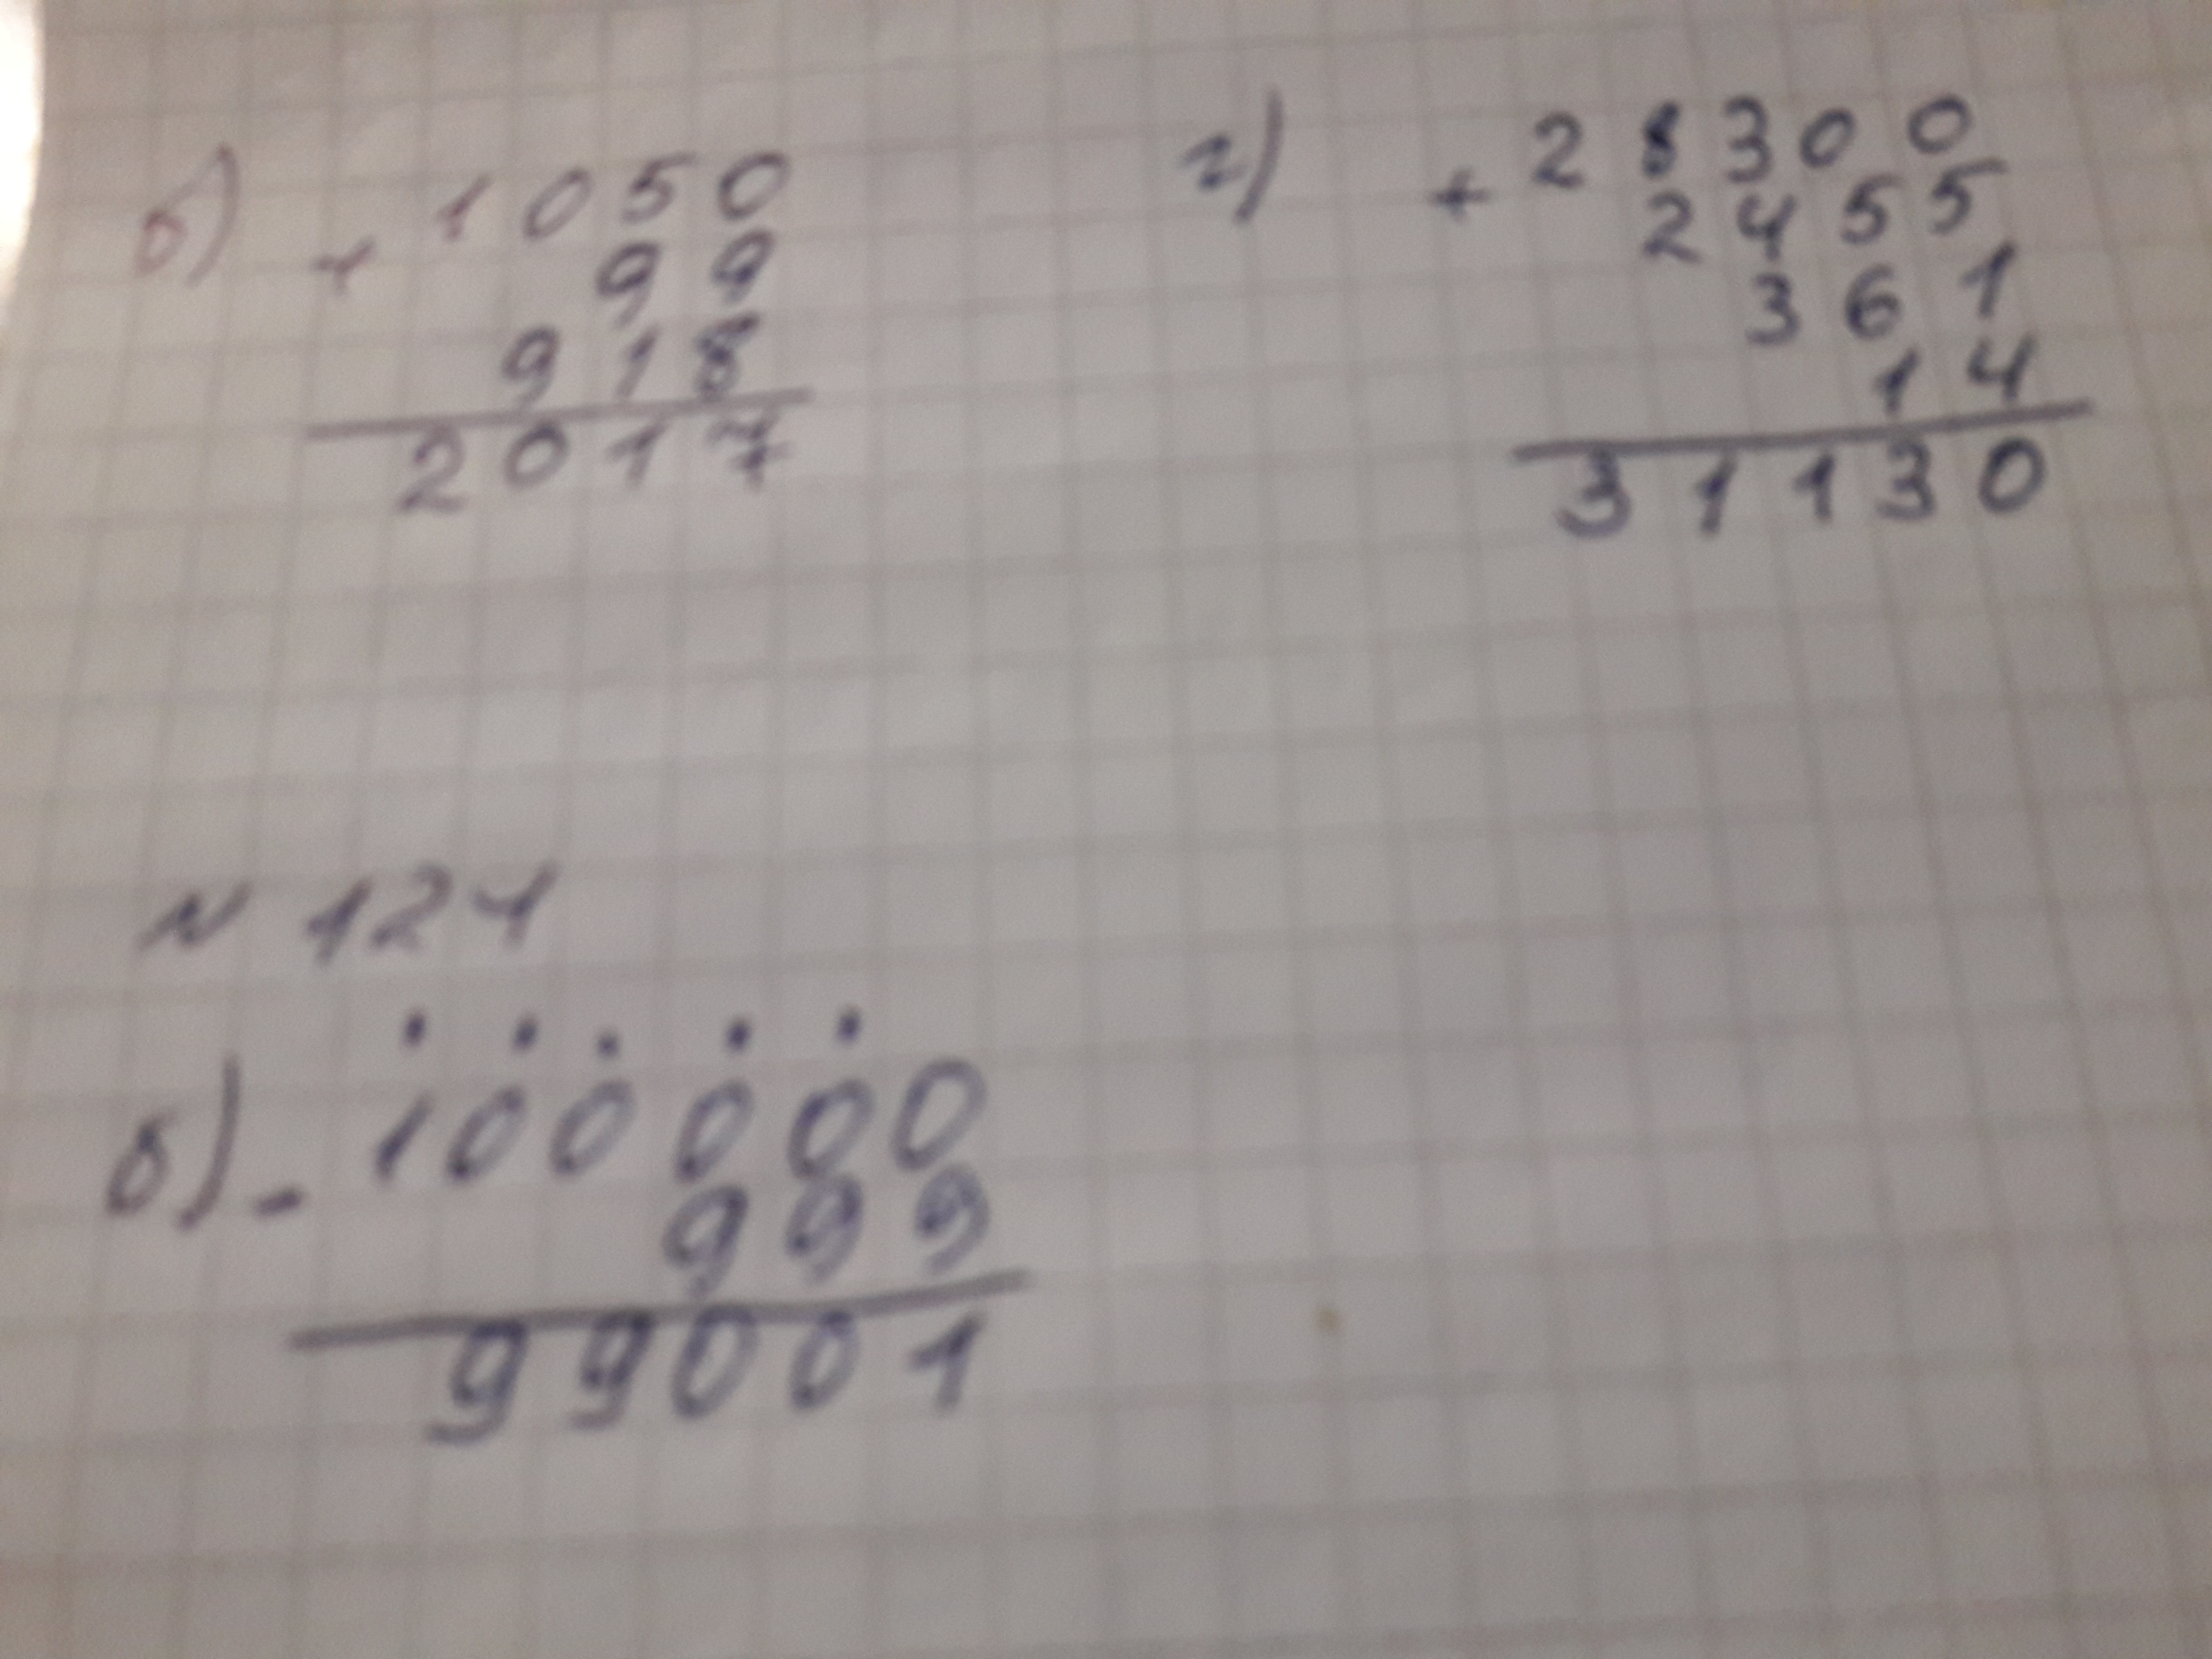 б) + 1050
99
918
2017
г) + 28300
2455
361
14
31130
N 124
б) - 100000
999
99001